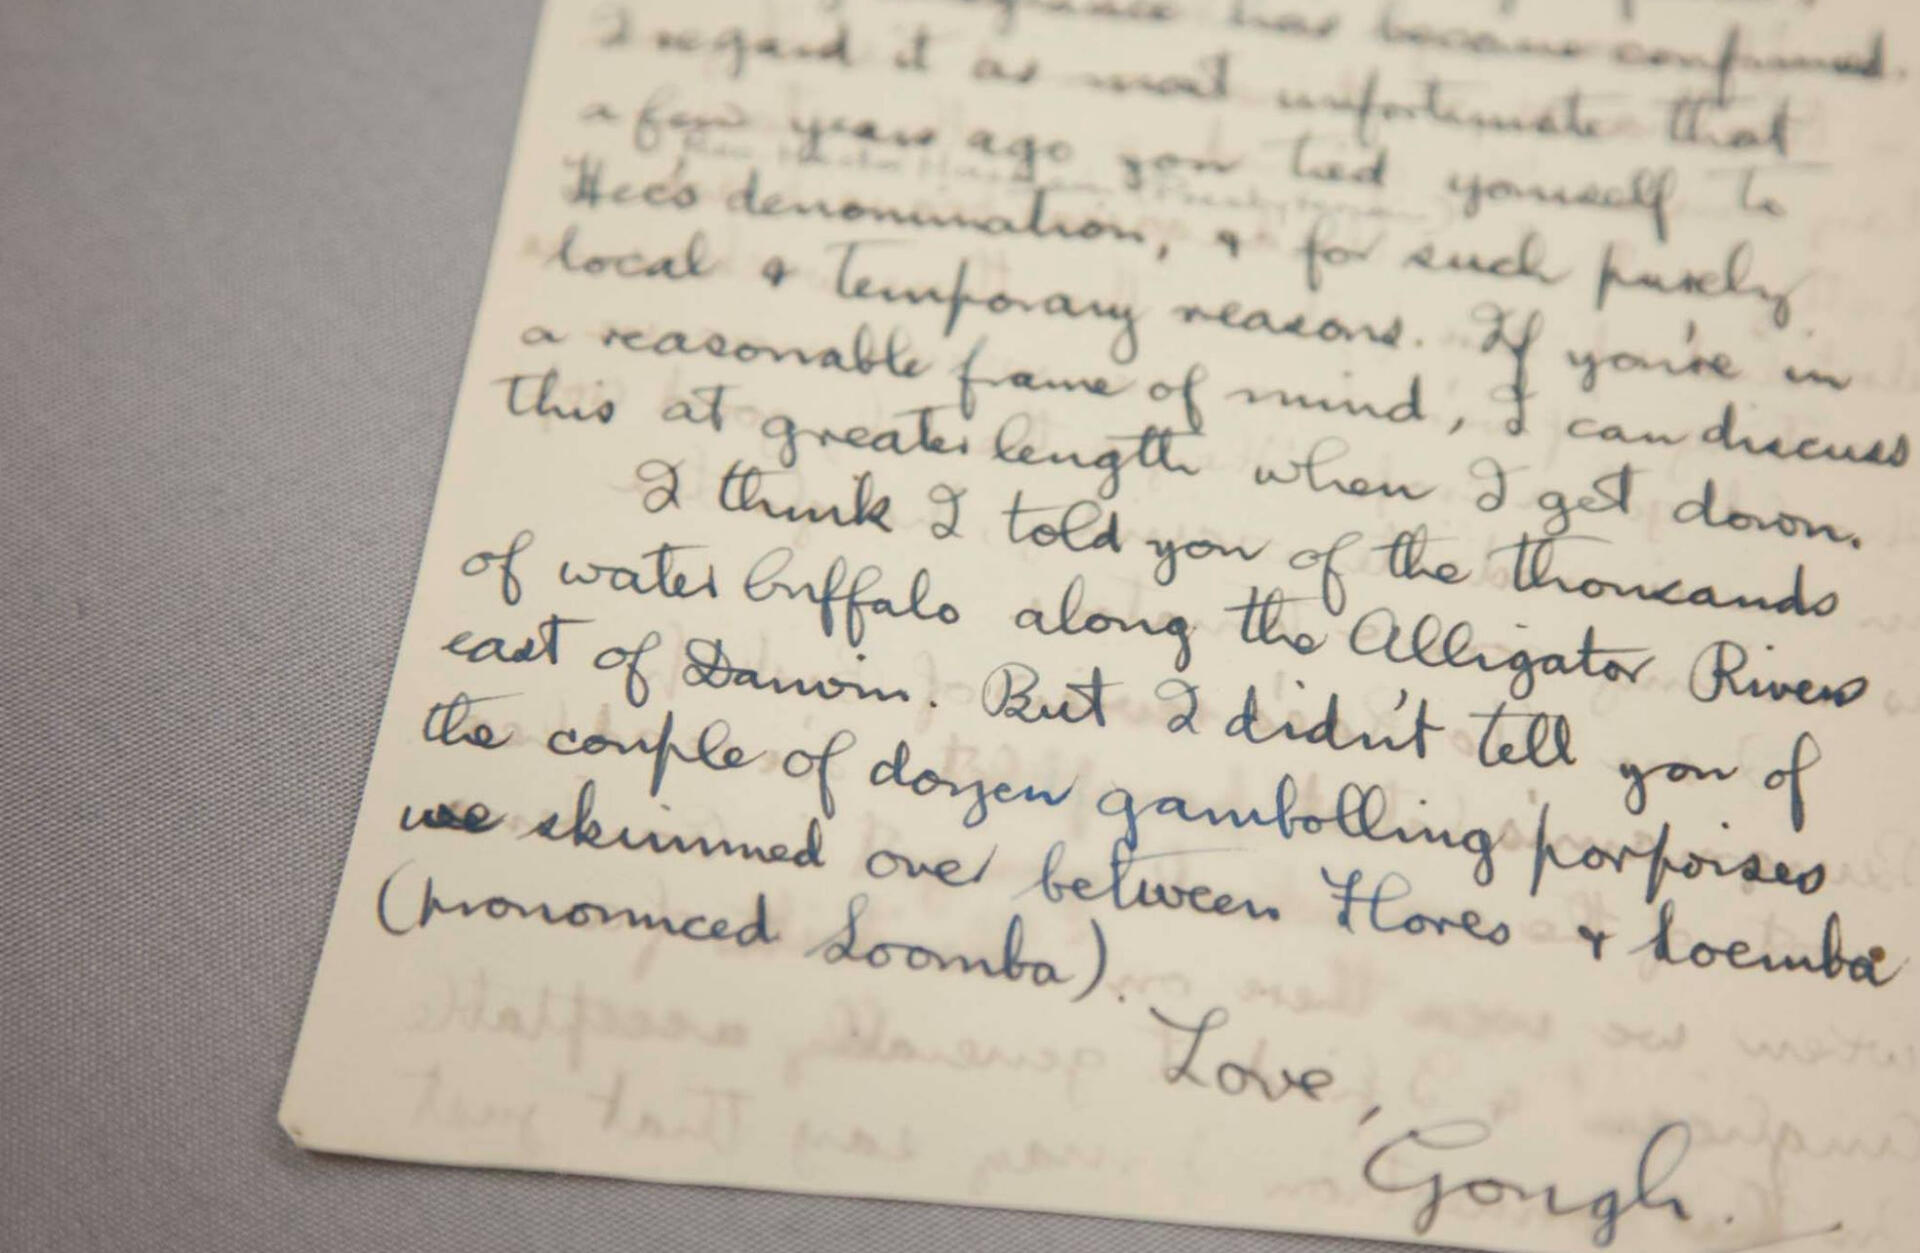 has become confirmed.
I regard it as most unfortunate that
a few years ago you tied yourself to
Hec's denomination, & for such purely
local & temporary reasons. If you're in
a reasonable frame of mind, I can discuss
this at greater length when I get down.
I think I told you of the thousands
of water buffalo along the Alligator Rivers
east of Darwin. But I didn't tell you of
the couple of dozen gambolling porpoises
we skimmed over between Flores & Loemba
(pronounced Loomba).
Love,
Gough.